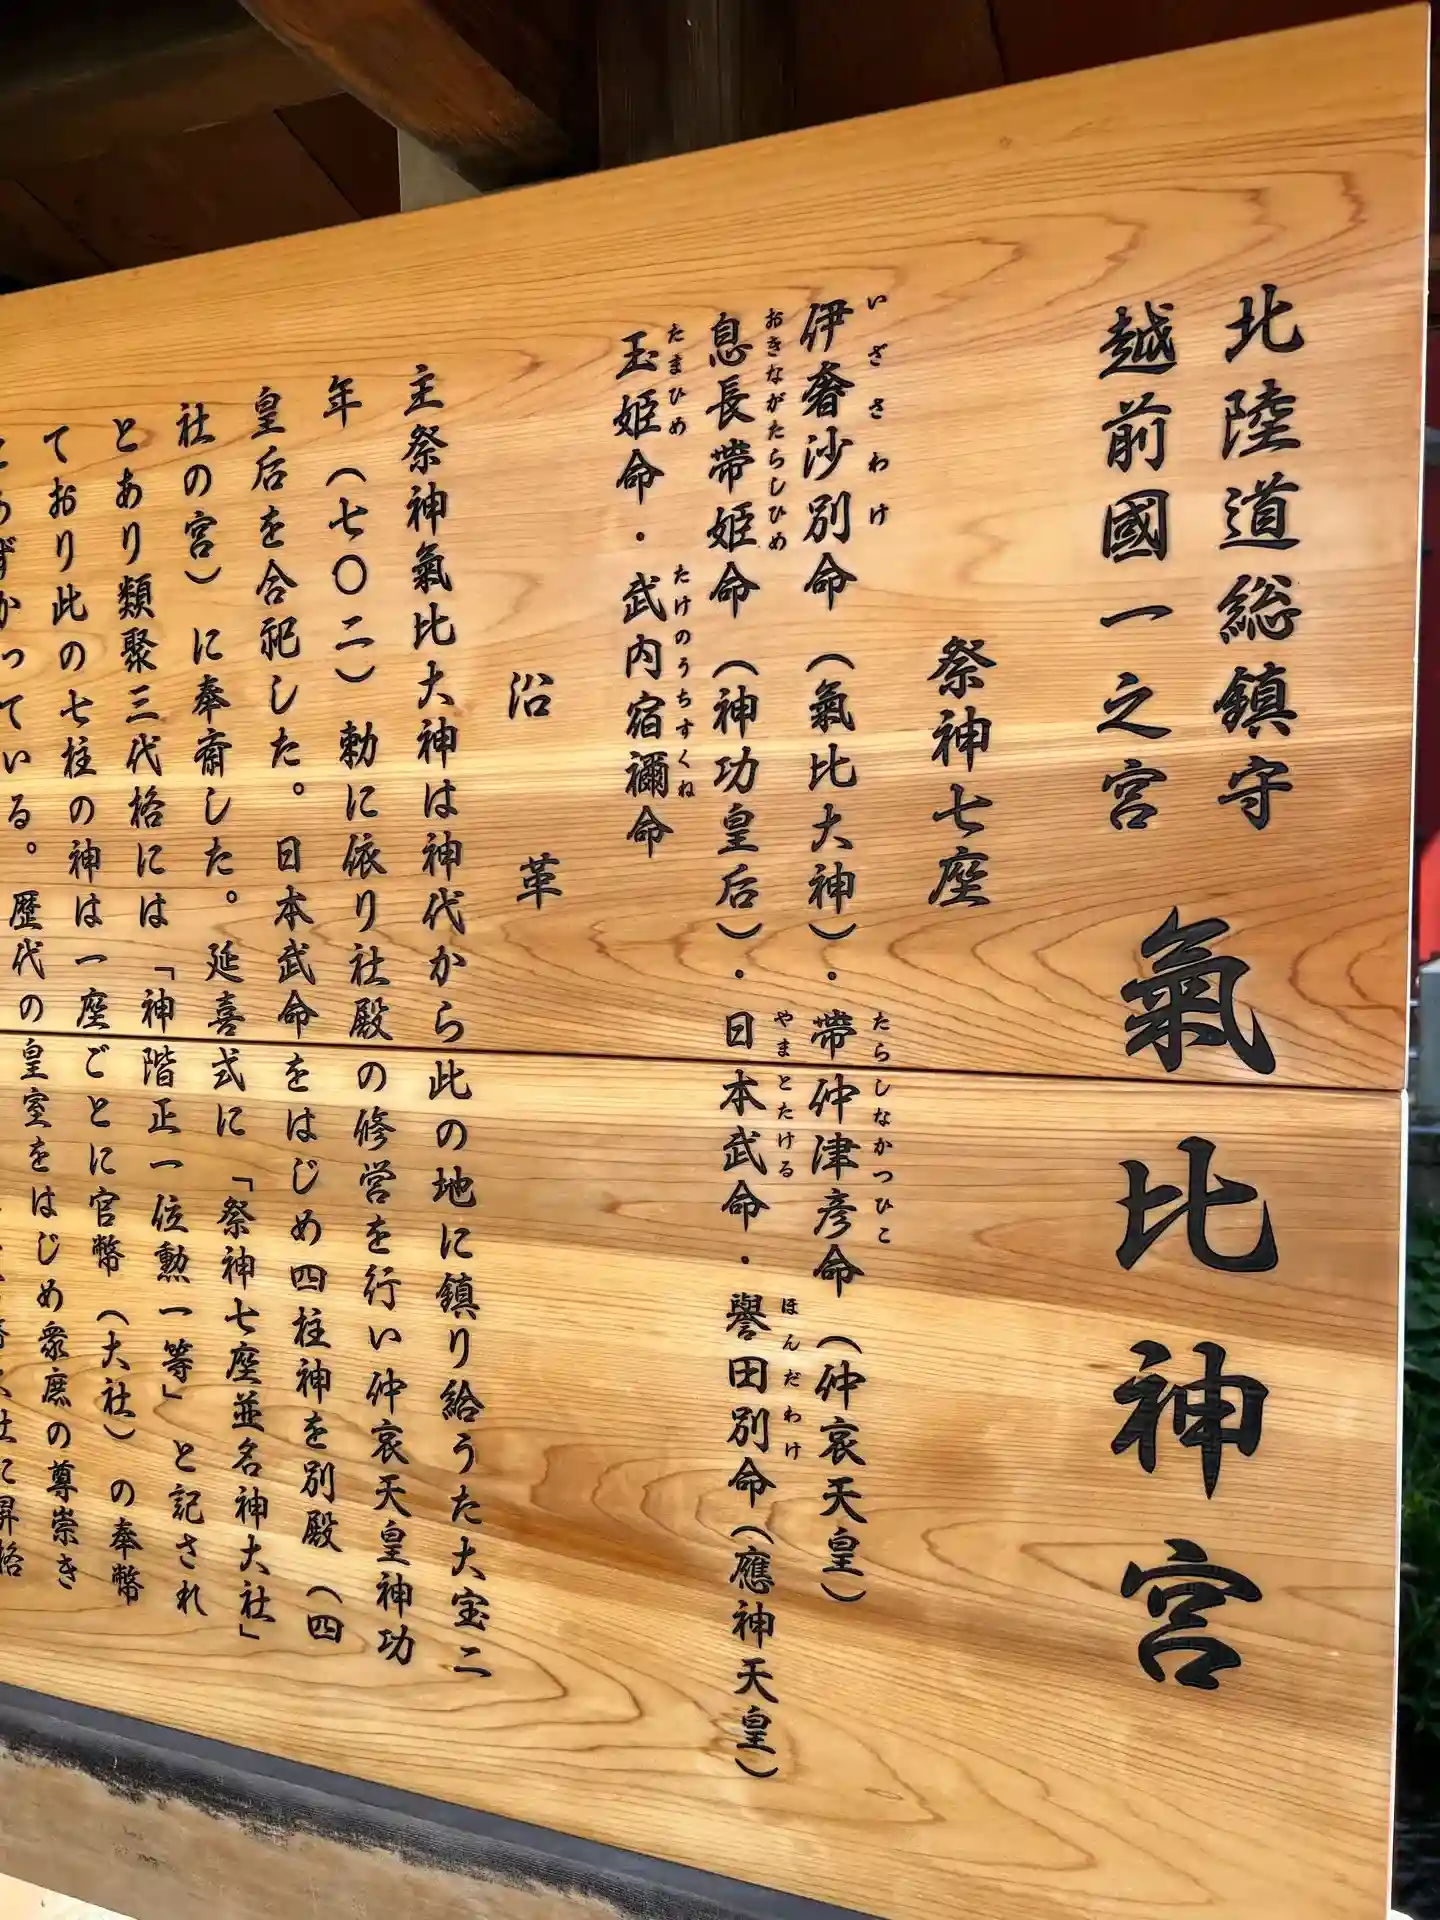 北陸道総鎮守
越前國一之宮
氣比神宮
祭神七座
伊奢沙別命（氣比大神）・帶仲津彦命（仲哀天皇）
いざさわけ
たらしなかつひこ
息長帶姫命（神功皇后）・日本武命・譽田別命（應神天皇）
おきながたらしひめ
やまとたける
ほんだわけ
玉姫命・武内宿禰命
たまひめ
たけのうちすくね
沿革
主祭神氣比大神は神代から此の地に鎮り給うた大宝二
年（七〇二）勅に依り社殿の修営を行い仲哀天皇神功
皇后を合祀した。日本武命をはじめ四柱神を別殿（四
社の宮）に奉斎した。延喜式に「祭神七座並名神大社」
とあり類聚三代格には「神階正一位勲一等」と記され
ており此の七柱の神は一座ごとに官幣（大社）の奉幣
あずかっている。歴代の皇室をはじめ衆庶の尊崇き
に昇格